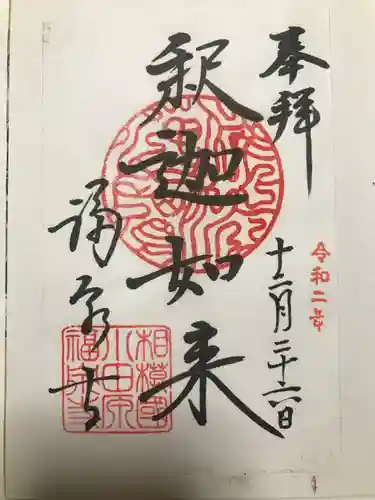 奉拝
令和二年
十二月二十六日
釈迦如来
福泉寺
相模國
小田原
福泉寺